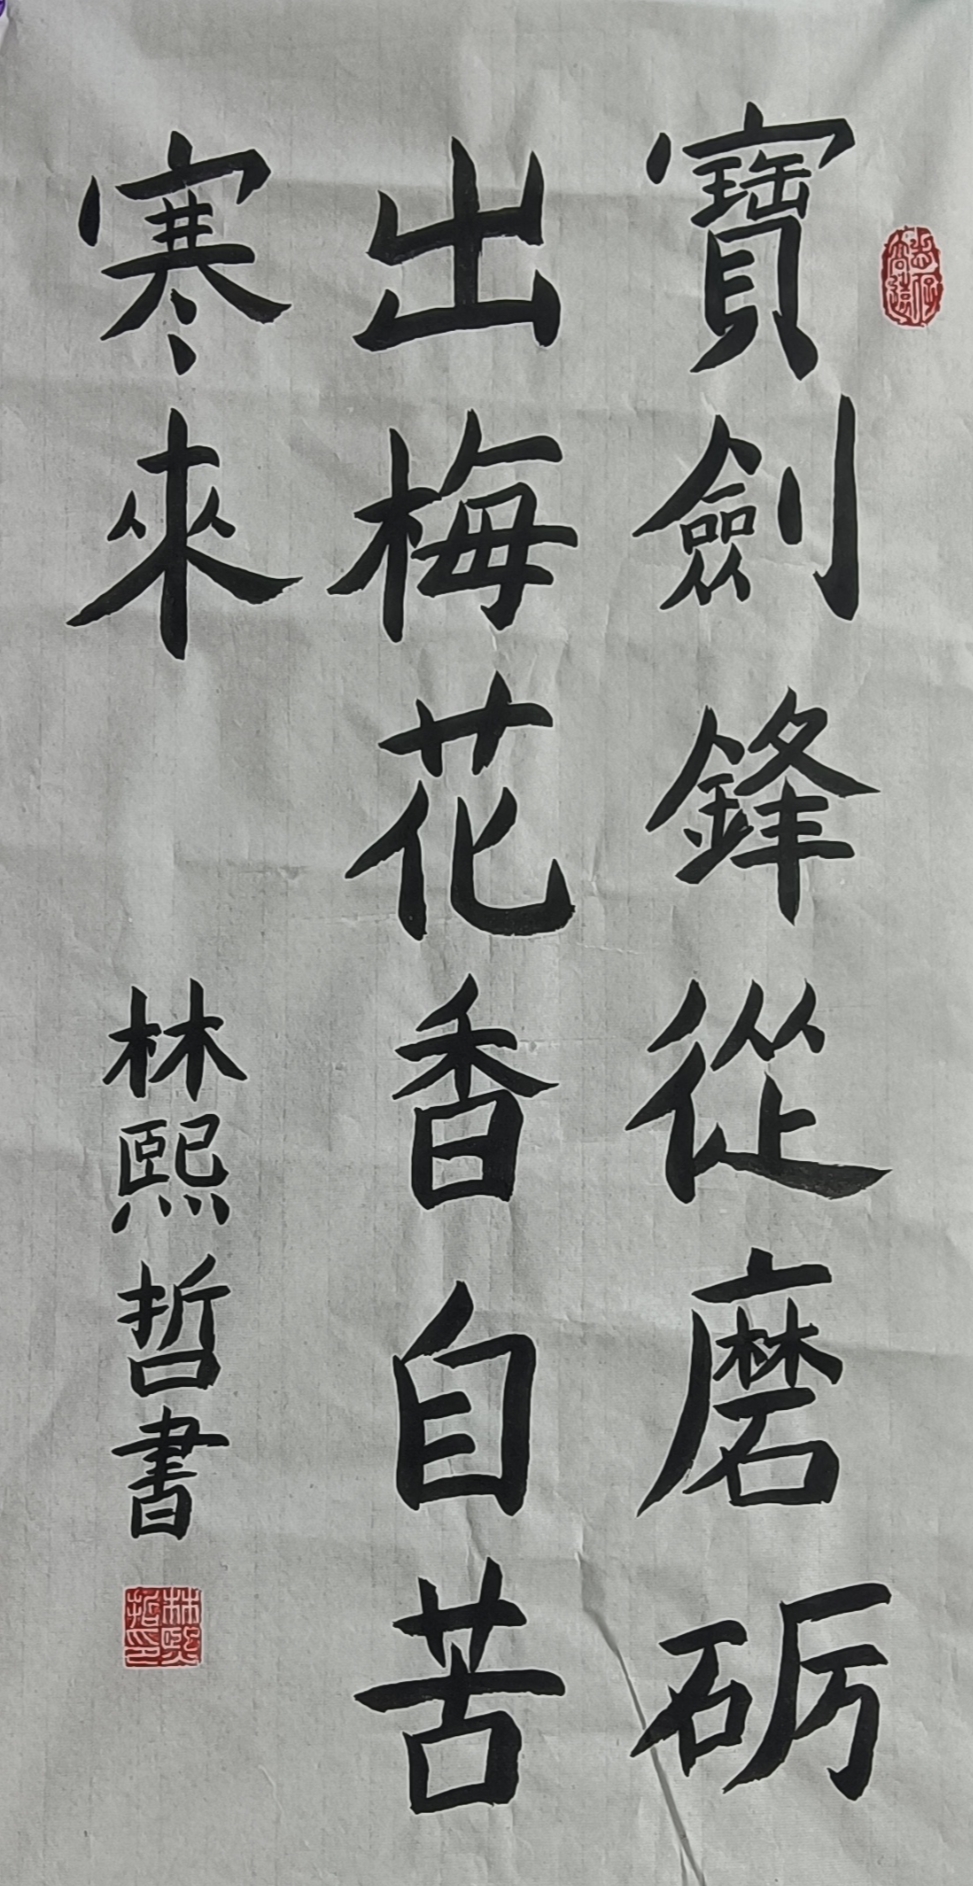 寶劍鋒從磨砺
出梅花香自苦
寒來
林熙哲書
志存高遠
林熙哲印